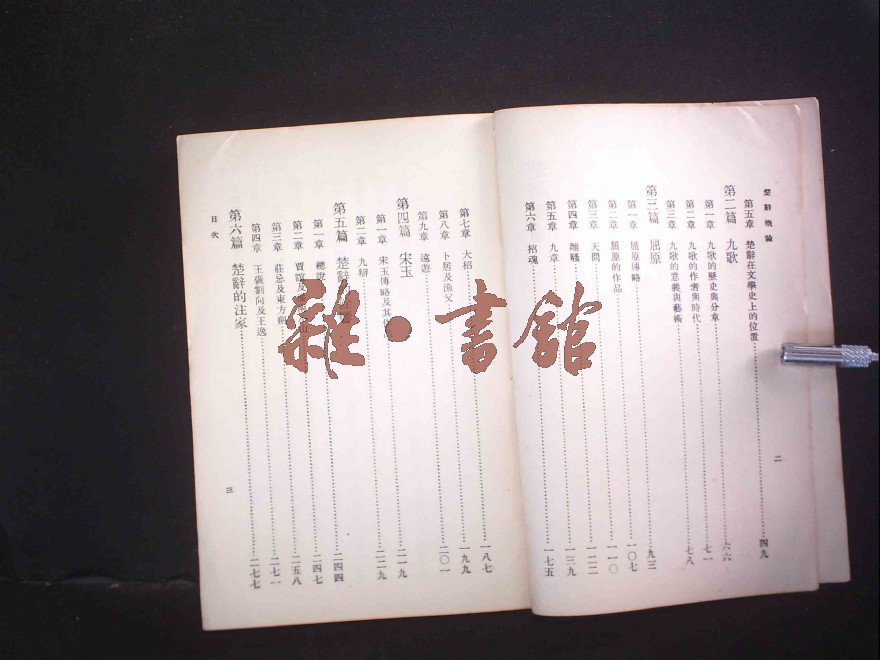 楚辭概論
第五章 楚辭在文學史上的位置…四九
第二篇 九歌…六六
第一章 九歌的歷史與分章…七一
第二章 九歌的作者與時代…七八
第三章 九歌的意義與藝術
第三篇 屈原…九三
第一章 屈原傳略…一〇七
第二章 屈原的作品…一一〇
第三章 天問…一二二
第四章 離騷…一三九
第五章 九章
第六章 招魂…一七五
二
第七章 大招…一八七
第八章 卜居及漁父…一九九
第九章 遠遊…二〇一
第四篇 宋玉…二一九
第一章 宋玉傳略及其
第二章 九辯…二二九
第五篇 楚辭…二四四
第一章 總說…二四七
第二章 賈誼及…二五八
第三章 莊忌及東方朔…二七一
第四章 王褒劉向及王逸
第六篇 楚辭的注家…二七七
目次
三
雜·書館